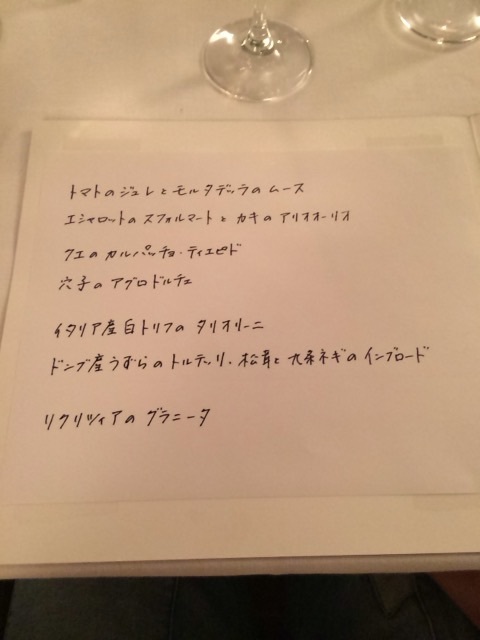 トマトのジュレとモルタデッラのムース
エシャロットのスフォルマートとカキのアリオオーリオ
クエのカルパッチョ・ティエピド
穴子のアグロドルチェ
イタリア産白トリフのタリオリーニ
ドンブ産うずらのトルテッリ、松茸と九条ネギのインブロード
リクリツィアのグラニータ